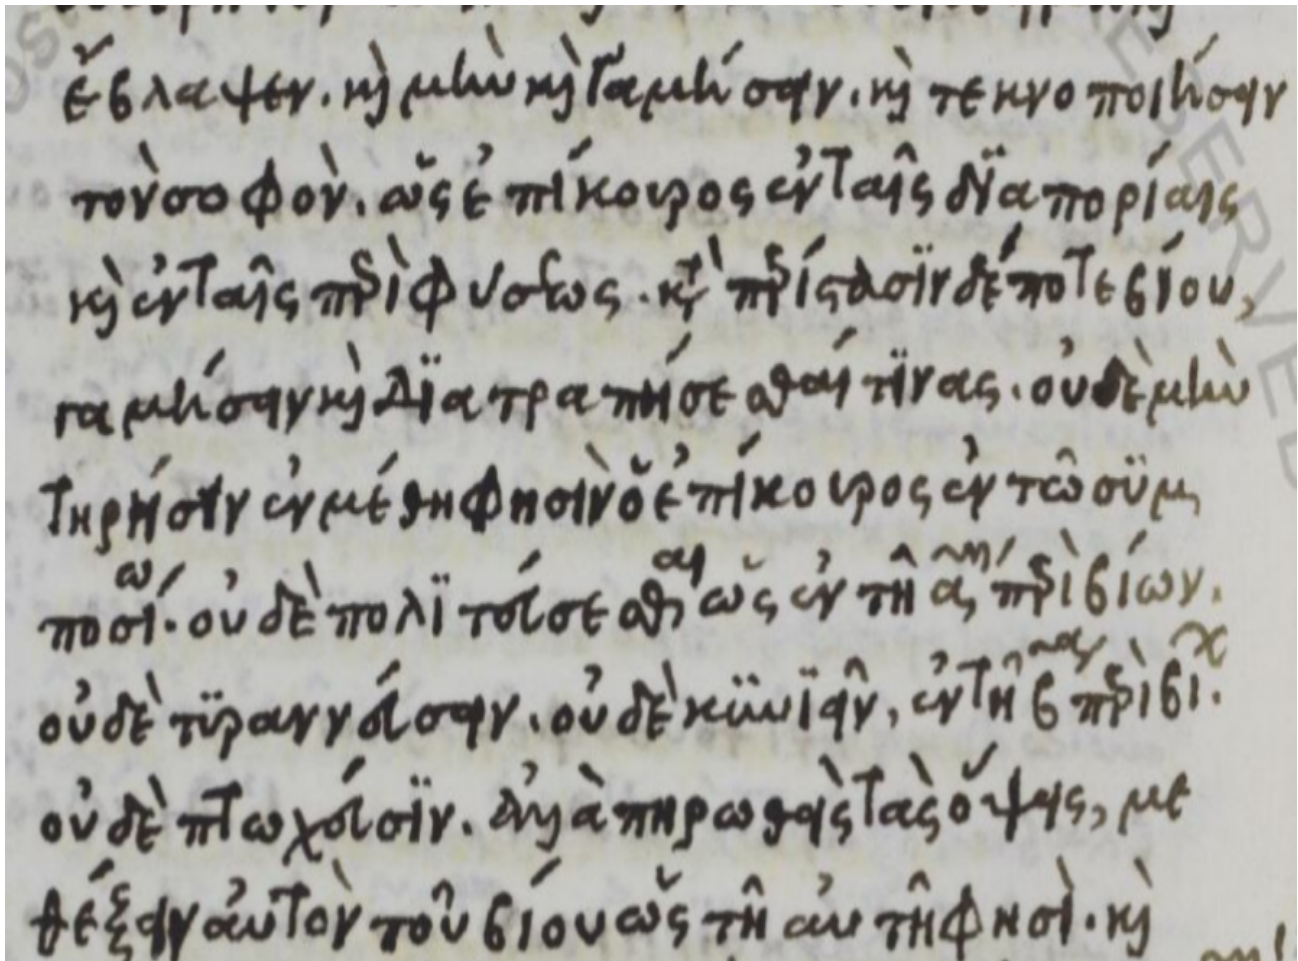 ἔβλαψεν. κὶ μὴν κὶ γαμήσειν. κὶ τεκνοποιήσειν
τὸν σοφὸν. ὡς ἐπίκουρος ἐν ταῖς διαπορίαις
κὶ ἐν ταῖς περὶ φύσεως. κατὰ περίστασιν δέ ποτε βίου,
γαμήσειν κὶ διατραπήσεσθαί τινας. οὐδὲ μὴν
τηρήσειν ἐν μέθη φησὶν ὁ ἐπίκουρος ἐν τῶ συμ
ποσίω. οὐδὲ πολιτεύσεσθαι ὡς ἐν τῆ α περὶ βίων.
οὐδὲ τυραννεύσειν. οὐδὲ κυνιεῖν, ἐν τῆ β περὶ βί.
οὐδὲ πτωχεύσειν. ἀλλὰ πηρωθεὶς τὰς ὄψεις, με
θέξειν αὐτὸν τοῦ βίου ὡς τῆ αὐτῆ φησὶ. κὶ